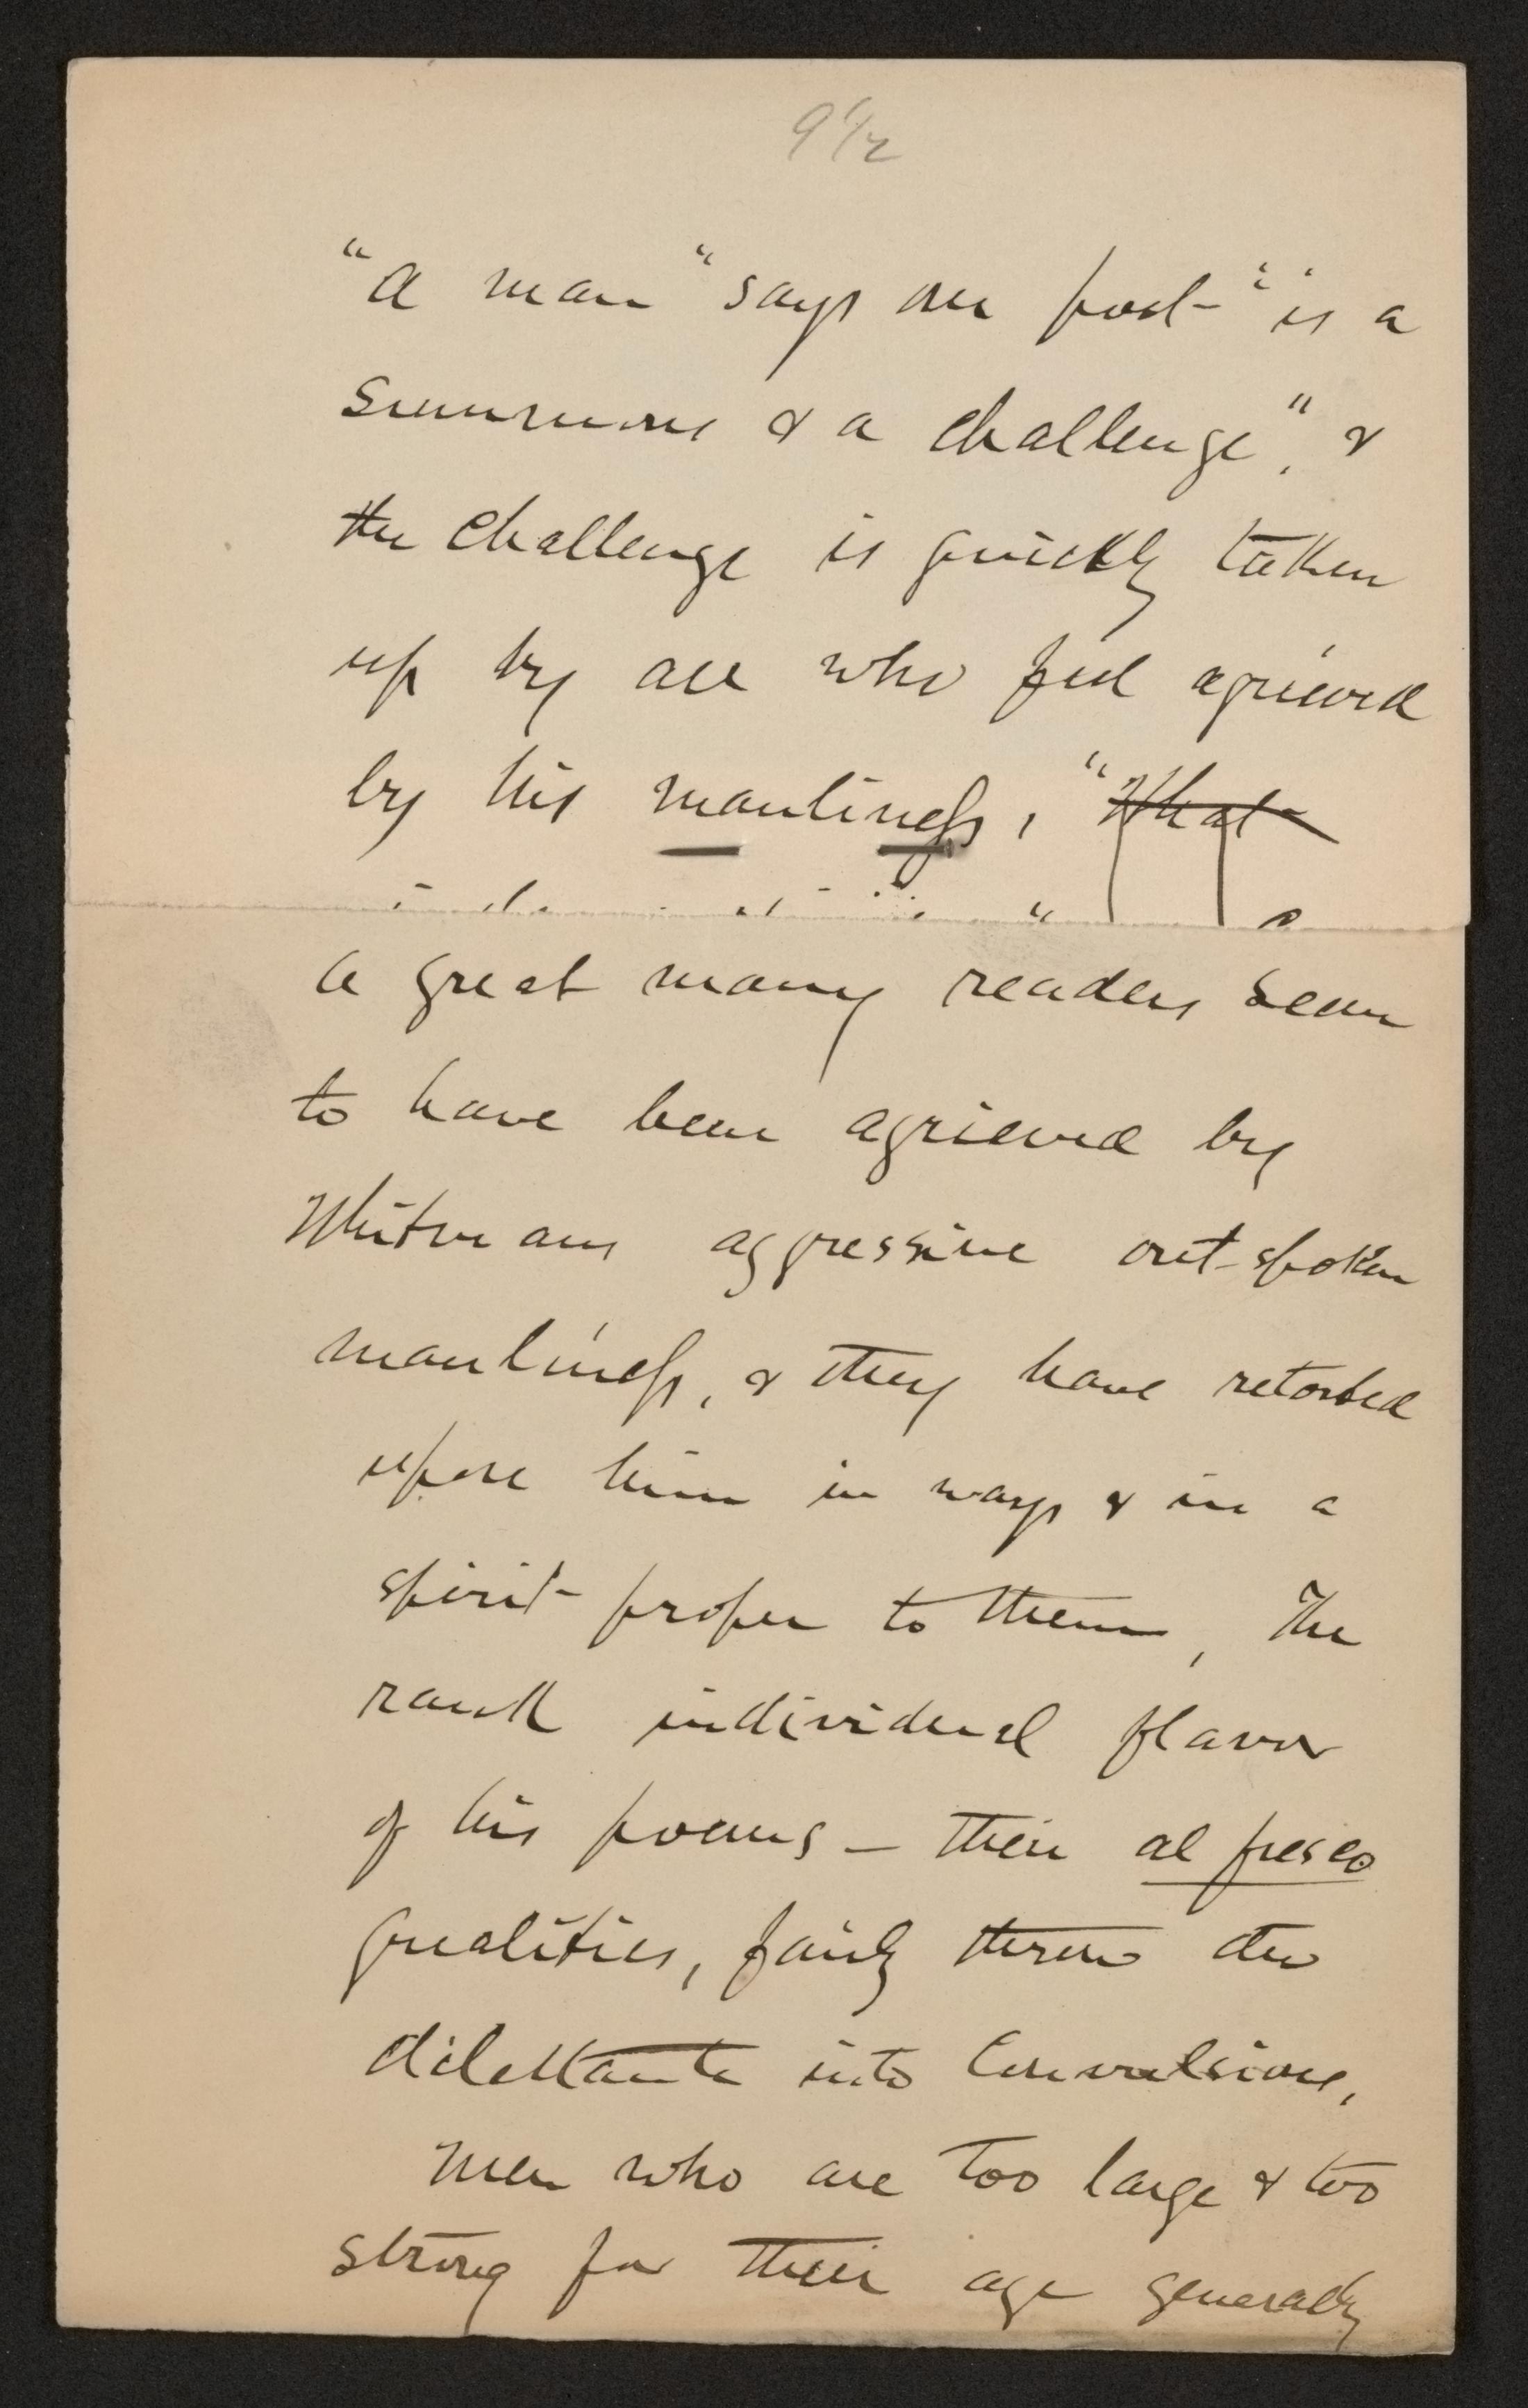 9 1/2
"A man" says our poet "is a
summons & a challenge," &
the challenge is quickly taken
up by all who feel agrieved
by his manliness, "What
a great many readers seem
to have been agrieved by
Whitmans aggressive out-spoken
manliness, & they have retorted
upon him in ways & in a
spirit proper to them, The
rank individual flavor
of his poems — their al fresco
qualities, fairly throw the
dilettante into convulsions,
Men who are too large & too
strong for their age generally